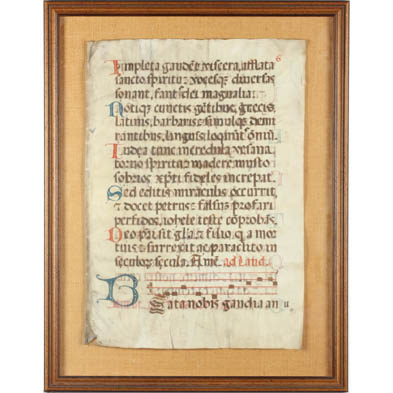 Impleta gaudēt viscera, afflata 6
sancto spiritu: vocesque diversas
sonant, fant̄ dei magnalia.
Notique cunctis gētibus, grecis,
latinis, barbaris: simulque demi
rantibus, linguis loquūt̄ om̄iū.
Iudea tunc incredula, vesana
torvo spiritu: madere musto
sobrios, xp̄i fideles increpat.
Sed editis miraculis, occurrit,
& docet petrus: falsus profari
perfidos, iohele teste cōprobās.
Deo patri sit gl̄ia, & filio, q̄ a mor
tuis: surrexit ac paraclito in
seculorū secula. Amē. ad Laud.
B
eata nobis gaudia an